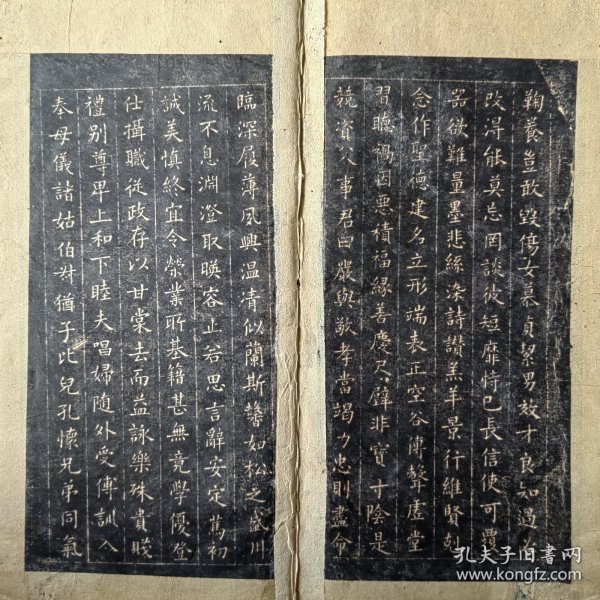 鞠養豈敢毀傷女慕貞絜男效才良知過必
改得能莫忘罔談彼短靡恃己長信使可覆
器欲難量墨悲絲染詩讚羔羊景行維賢剋
念作聖德建名立形端表正空谷傳聲虛堂
習聽禍因惡積福緣善慶尺璧非寶寸陰是
競資父事君曰嚴與敬孝當竭力忠則盡命
臨深履薄夙興溫凊似蘭斯馨如松之盛川
流不息淵澄取暎容止若思言辭安定篤初
誠美慎終宜令榮業所基籍甚無竟學優登
仕攝職從政存以甘棠去而益詠樂殊貴賤
禮別尊卑上和下睦夫唱婦隨外受傅訓入
奉母儀諸姑伯叔猶子比兒孔懷兄弟同氣
孔夫子旧书网
www.kongfz.com